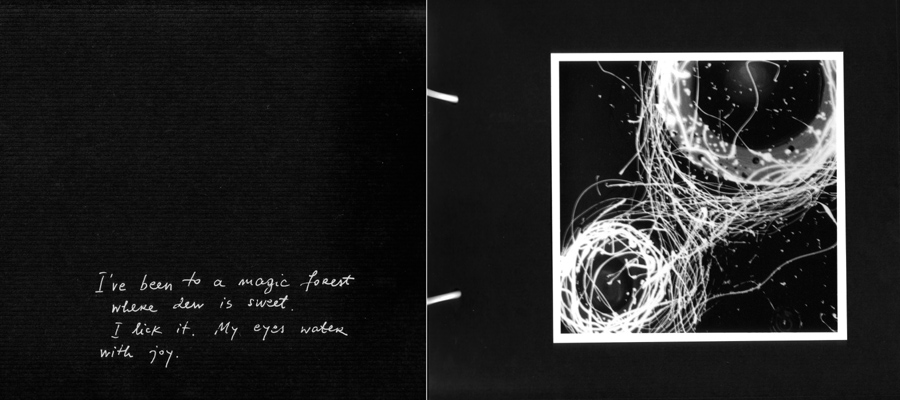 I've been to a magic forest
where dew is sweet.
I lick it. My eyes water
with joy.